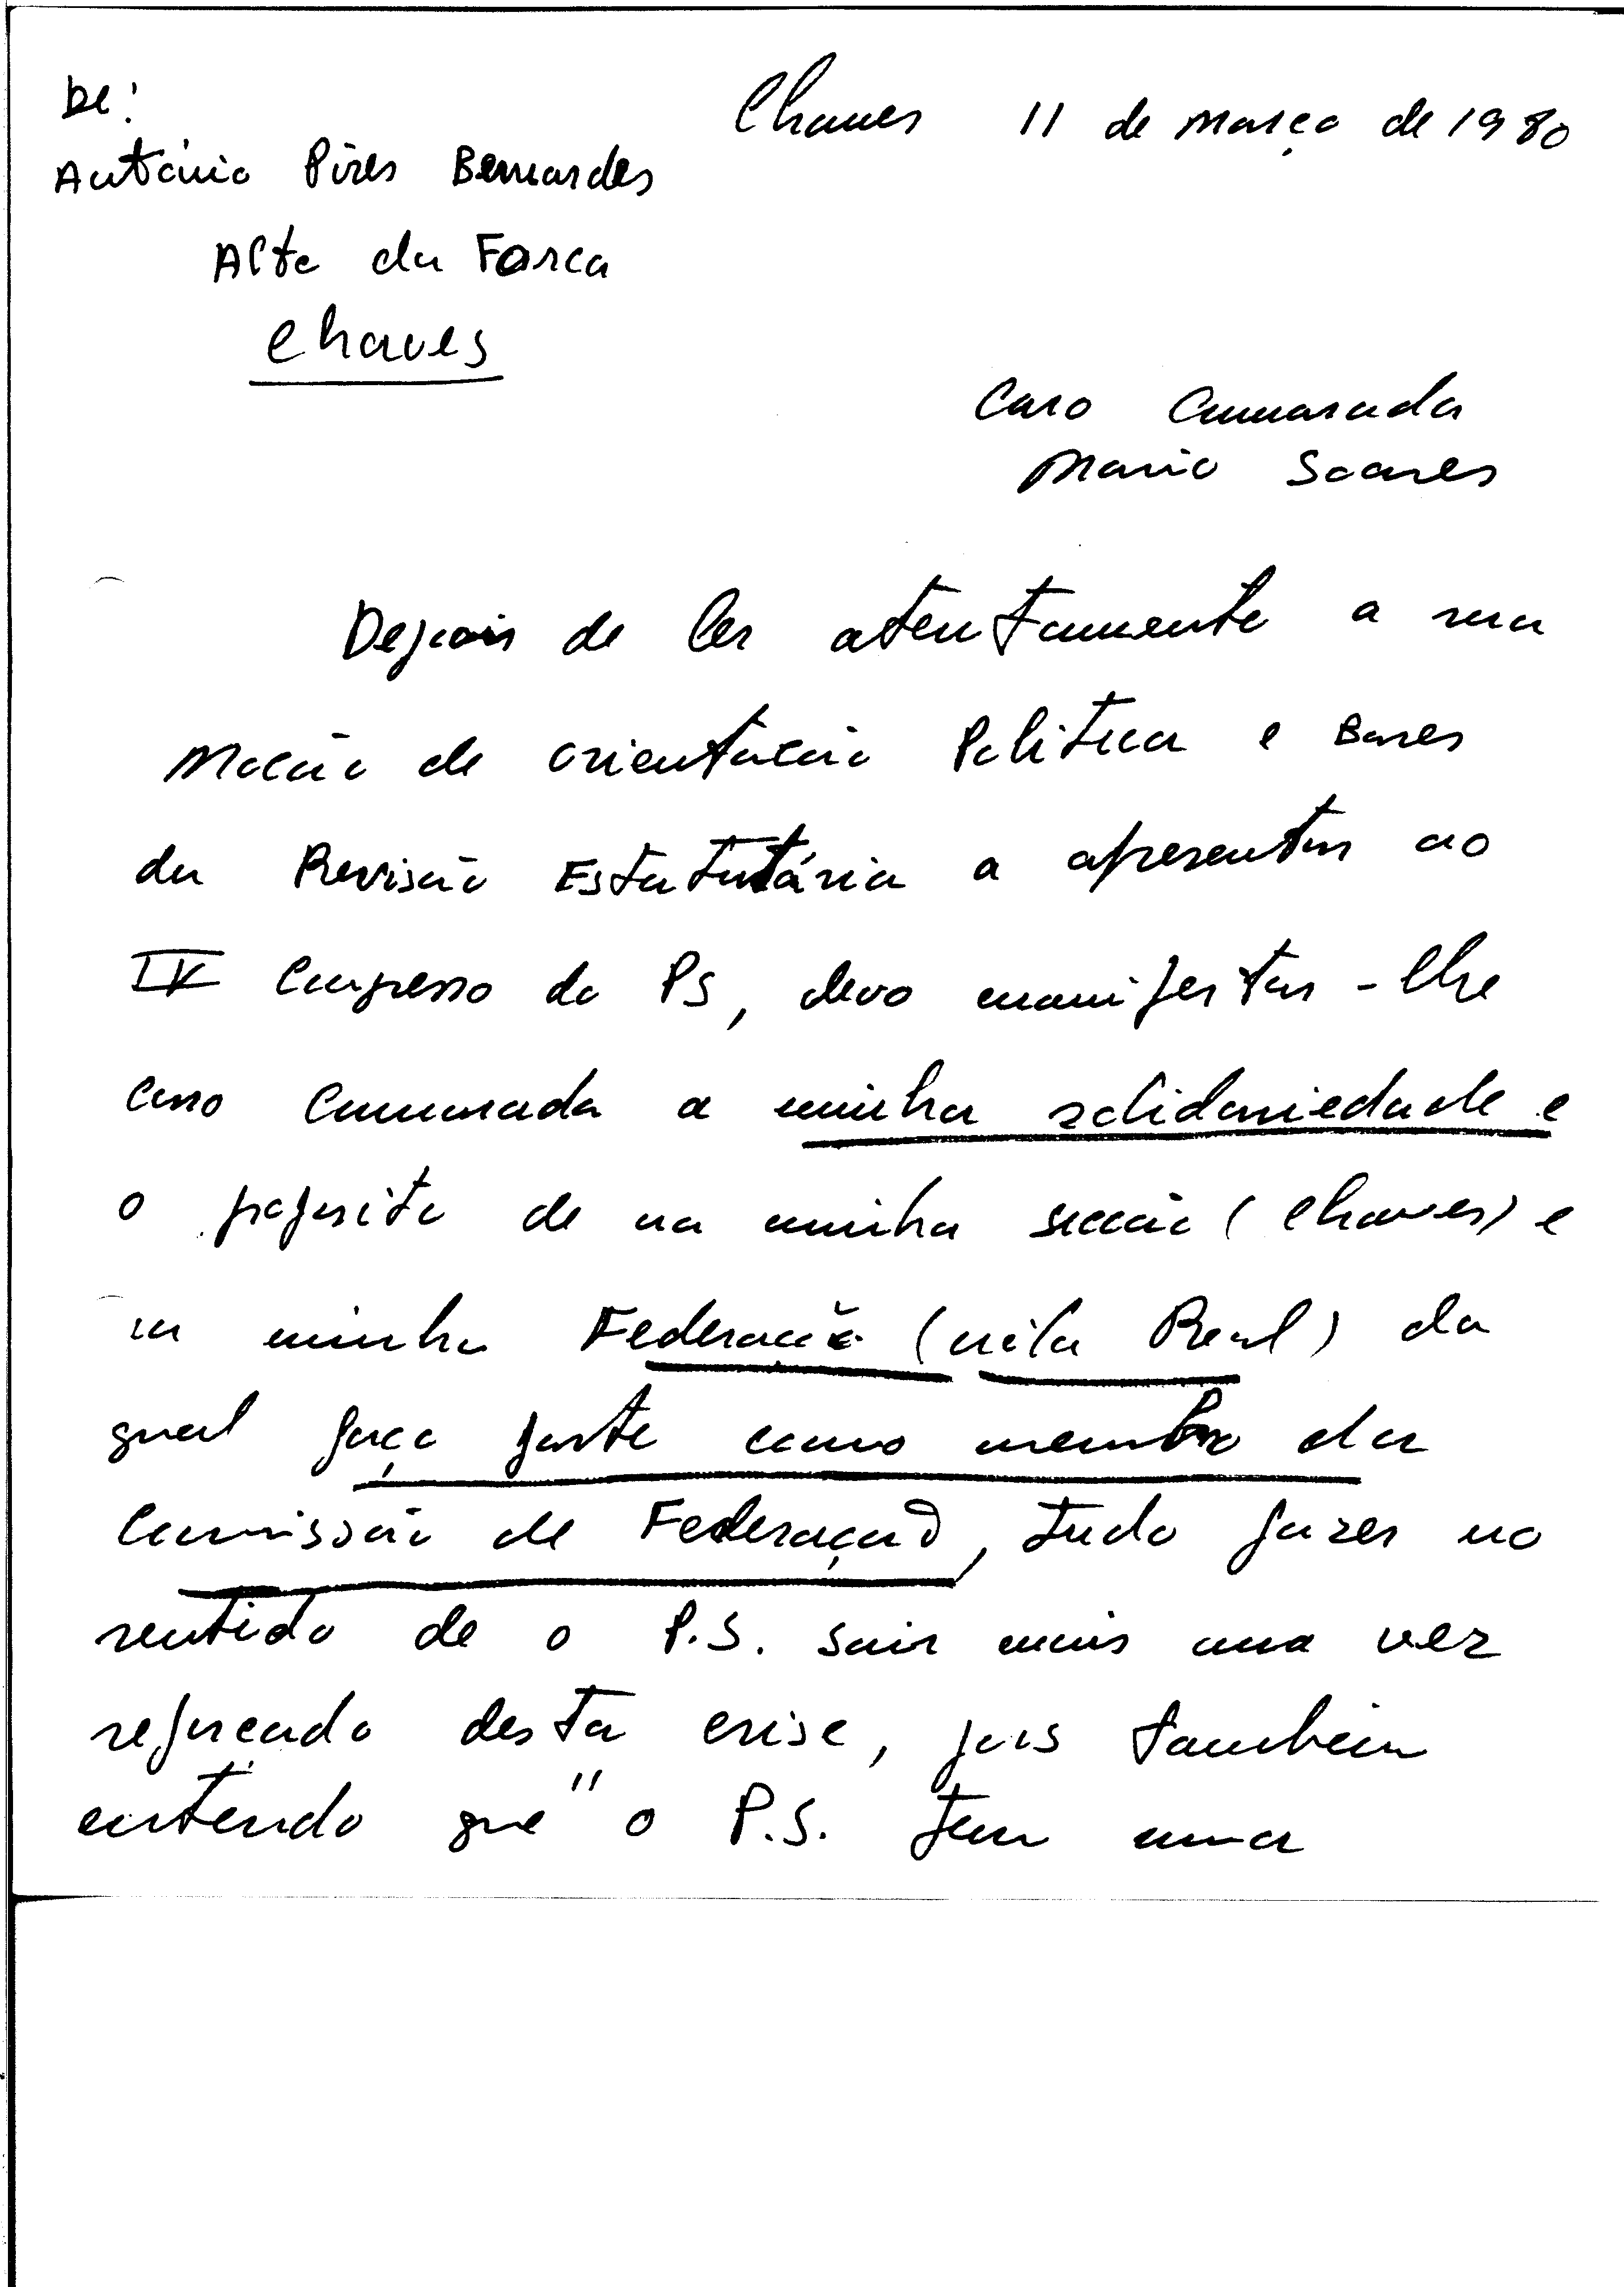 De:
António Pires Bernardes
Alto da Forca
Chaves
Chaves 11 de março de 1980
Caro Camarada
Mario Soares
Depois de ler atentamente a sua
Moção de orientação Politica e Bases
da Revisão Estatutária a apresentar ao
IV Congresso do PS, devo manifestar-lhe
caro Camarada a minha solidariedade e
o proposito de na minha secção (Chaves) e
na minha Federação (vila Real) da
qual faço parte como membro da
Comissão de Federação, tudo fazer no
sentido de o P.S. sair mais uma vez
reforcado desta crise, pois tambem
entendo que " o P.S. tem uma